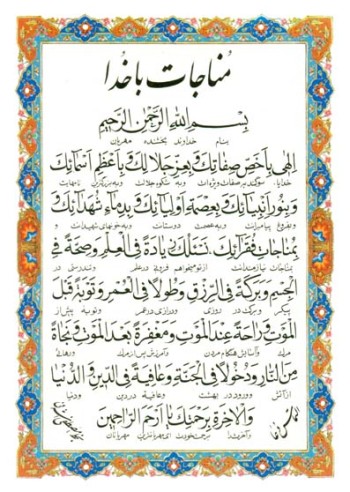 مناجات با خدا
بِسْمِ اللهِ الرَّحْمٰنِ الرَّحیمِ
بنام خداوند بخشنده مهربان
اِلهی بِاَخَصِّ صِفاتِكَ وَ بِعِزِّ جَلالِكَ وَ بِاَعْظَمِ اَسْمائِكَ
خدایا سوگند بر صفات ویژه‌ات و به شکوه جلالت و به بزرگترین نامهایت
وَ بِنُورِ اَنْبِیائِكَ وَ بِعِصْمَةِ اَوْلِیائِكَ وَ بِدِماءِ شُهَدائِكَ وَ
و بفروغ پیامبرانت و به عصمت دوستانت و به خونهای شهیدانت و
بِمُناجاتِ فُقَرائِكَ نَسْئَلُكَ زِیادَةً فِی الْعِلْمِ وَ صِحَّةً فِی
بمناجات نیازمندانت از تو میخواهم فزونی در علم و تندرستی در
الْجِسْمِ وَ بَرَكَةً فِی الرِّزْقِ وَ طُولاً فِی الْعُمْرِ وَ تَوْبَةً قَبْلَ
پیکر و برکت در روزی و درازی در عمر و توبه پیش از
الْمَوْتِ وَ راحَةً عِنْدَ الْمَوْتِ وَ مَغْفِرَةً بَعْدَ الْمَوْتِ وَ نَجاةً
مرگ و آسایش هنگام مردن و آمرزش پس از مرگ و رهائی
مِنَ النّارِ وَ دُخُولاً فِی الْجَنَّةِ وَ عافِیَةً فِی الدِّینِ وَ الدُّنْیا
از آتش و ورود در بهشت و عافیة در دین و دنیا
وَ الْاخِرَةِ بِرَحْمَتِكَ یا اَرْحَمَ الرّاحِمینَ
و آخرت برحمت خودت ای مهربانترین مهربانان